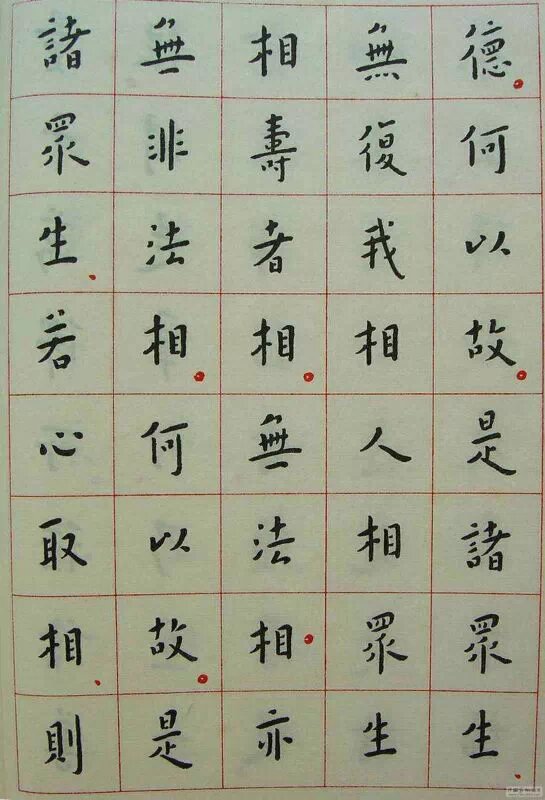 德何以故是諸眾生
無復我相人相眾生
相壽者相無法相亦
無非法相何以故是
諸眾生若心取相則